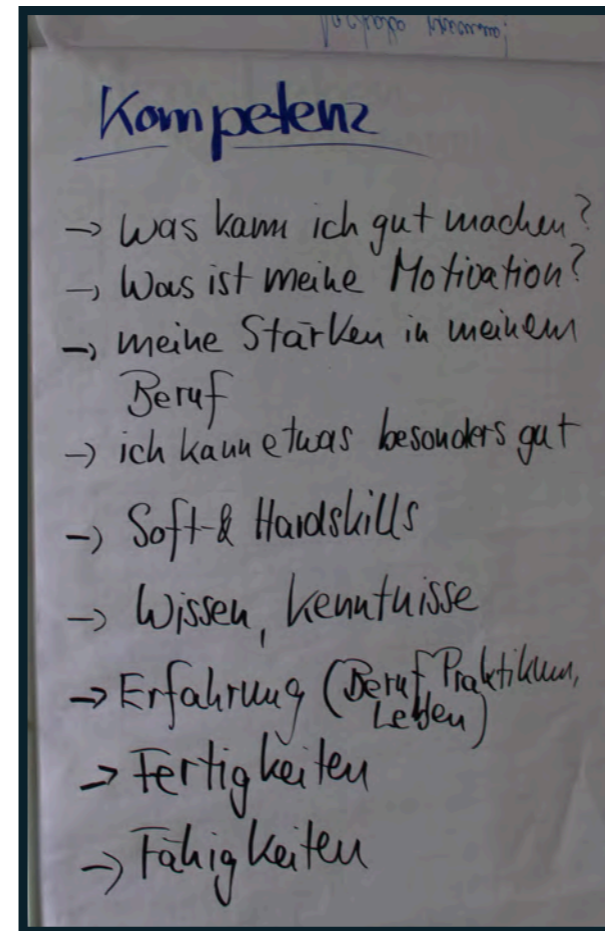 Kompetenz
→ Was kann ich gut machen?
→ Was ist meine Motivation?
→ meine Stärken in meinem
Beruf
→ ich kann etwas besonders gut
→ Soft- & Hardskills
→ Wissen, Kenntnisse
→ Erfahrung (Beruf, Praktikum,
Leben)
→ Fertigkeiten
→ Fähigkeiten